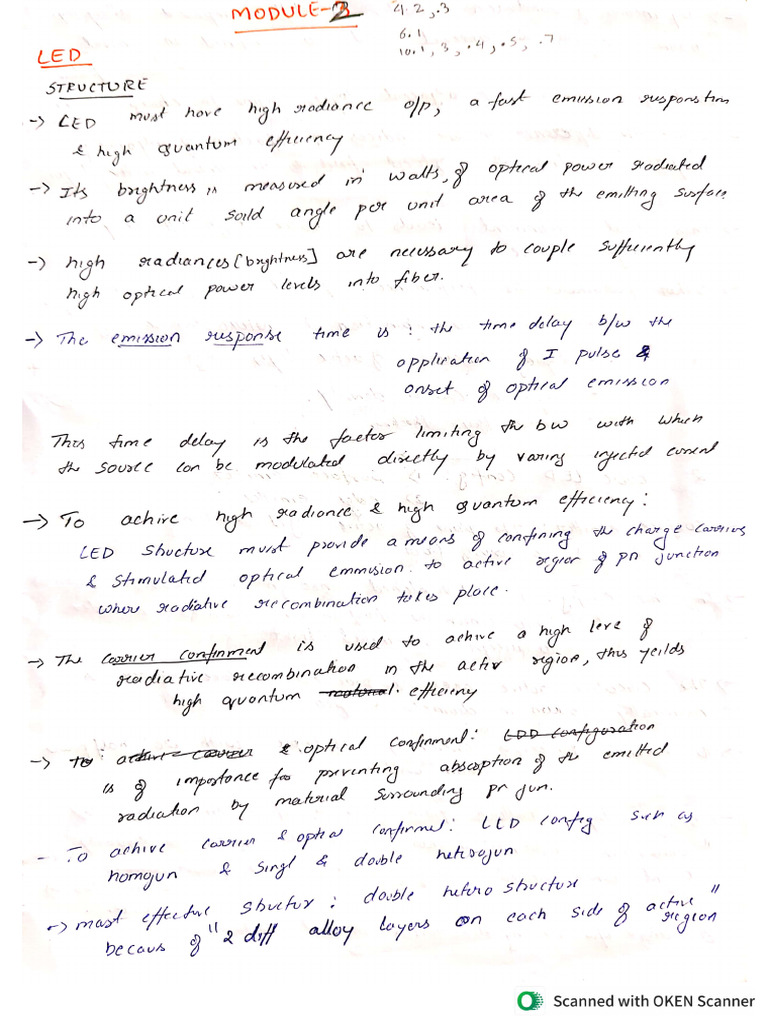 MODULE-2
4.2, .3
6.1
10.1, 3, .4, .5, .7
LED
STRUCTURE
-> LED must have high radiance o/p, a fast emission response time
& high quantum efficiency
-> Its brightness is measured in watts, of optical power radiated
into a unit soild angle per unit area of the emitting surface
-> high radiances [brightness] are necessary to couple sufficiently
high optical power levels into fiber.
-> The emission response time is : the time delay b/w the
application of I pulse &
onset of optical emission
This time delay is the factor limiting the bw with which
the source can be modulated directly by varing injected current
-> To achive high radiance & high quantum efficiency :
LED structure must provide a means of confining the charge carries
& stimulated optical emmision to active region of pn junction
where radiative recombination takes place.
-> The carrier confinment is used to achive a high leve of
radiative recombination in the activ region, this yeilds
high quantum material efficieny
-> To active carrier & optical confinment : LDD configuration
is of importance for preventing absorption of the emitted
radiation by material surrounding pn jun.
- To achive carrier & optial confinmet : LED config such as
homojun & singl & double hetrojun
-> most effective structur : double hetero structure
becaus of "2 diff alloy layers on each side of active region"
Scanned with OKEN Scanner